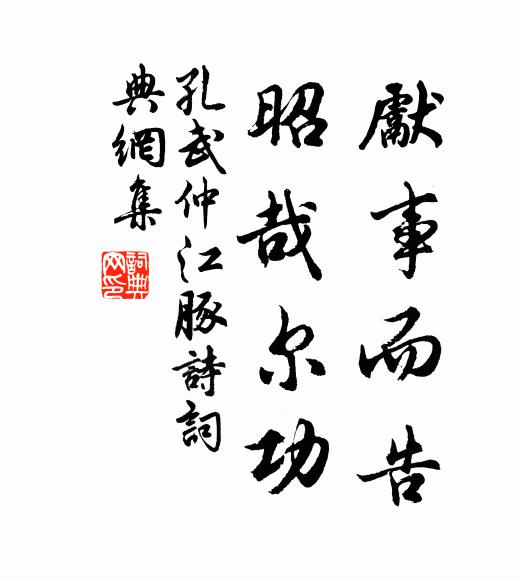 獻事而告
昭哉尔功
孔武仲江豚詩詞
典網集
詞典
网印